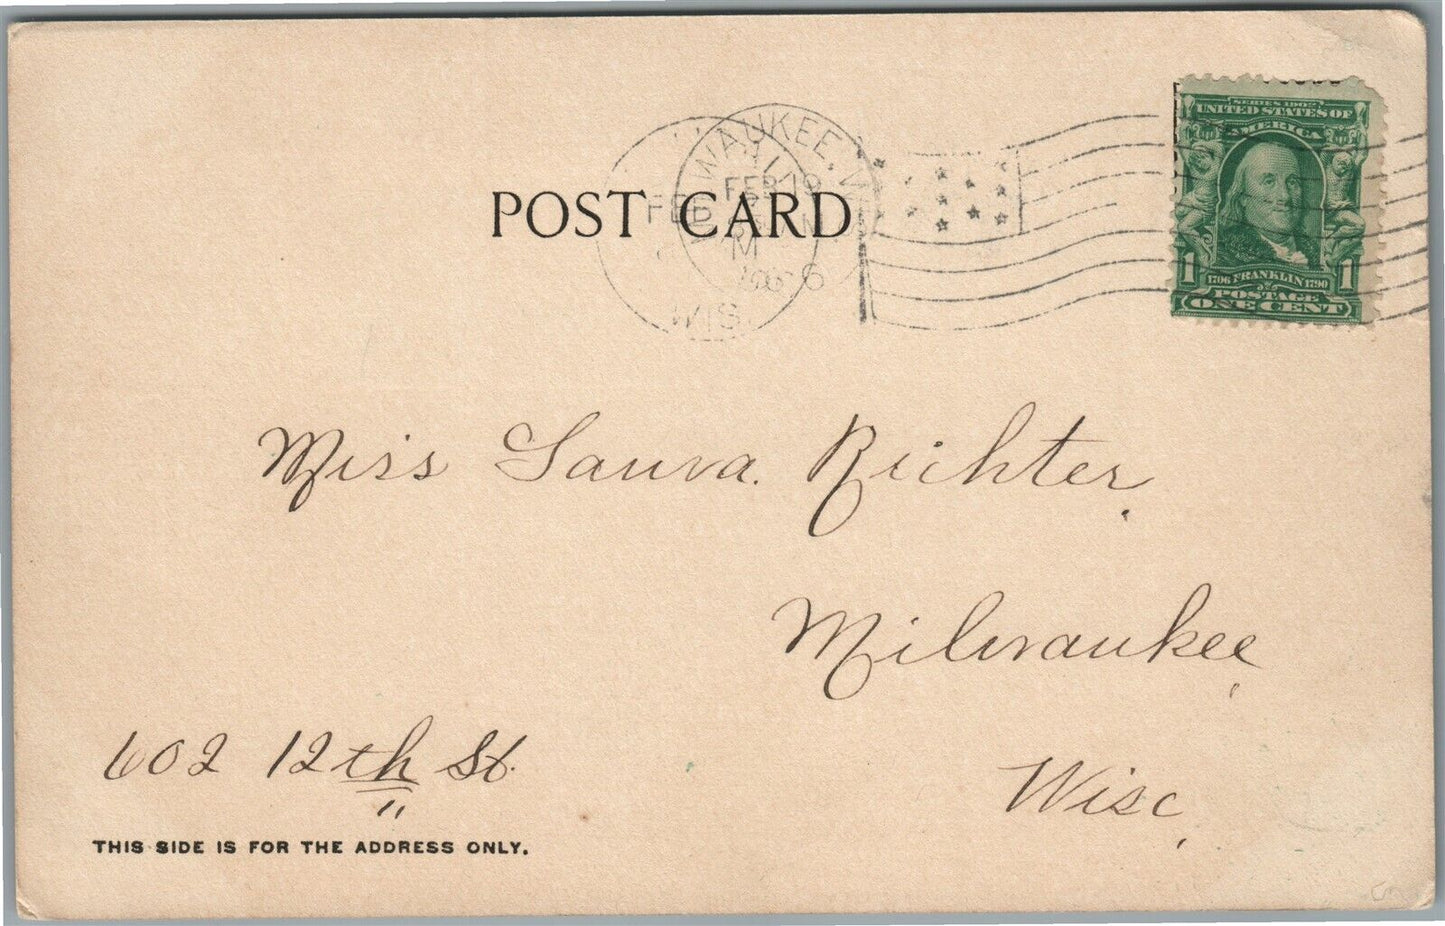 MILWAUKEE, WIS.
FEB 19
FEB
M
1906
6
WIS.
POST CARD
SERIES 1902
UNITED STATES OF
AMERICA
1 1706 FRANKLIN 1790 1
POSTAGE
ONE CENT
Miss Laura. Richter.
Milwaukee,
602 12th St.
Wisc,
THIS SIDE IS FOR THE ADDRESS ONLY.